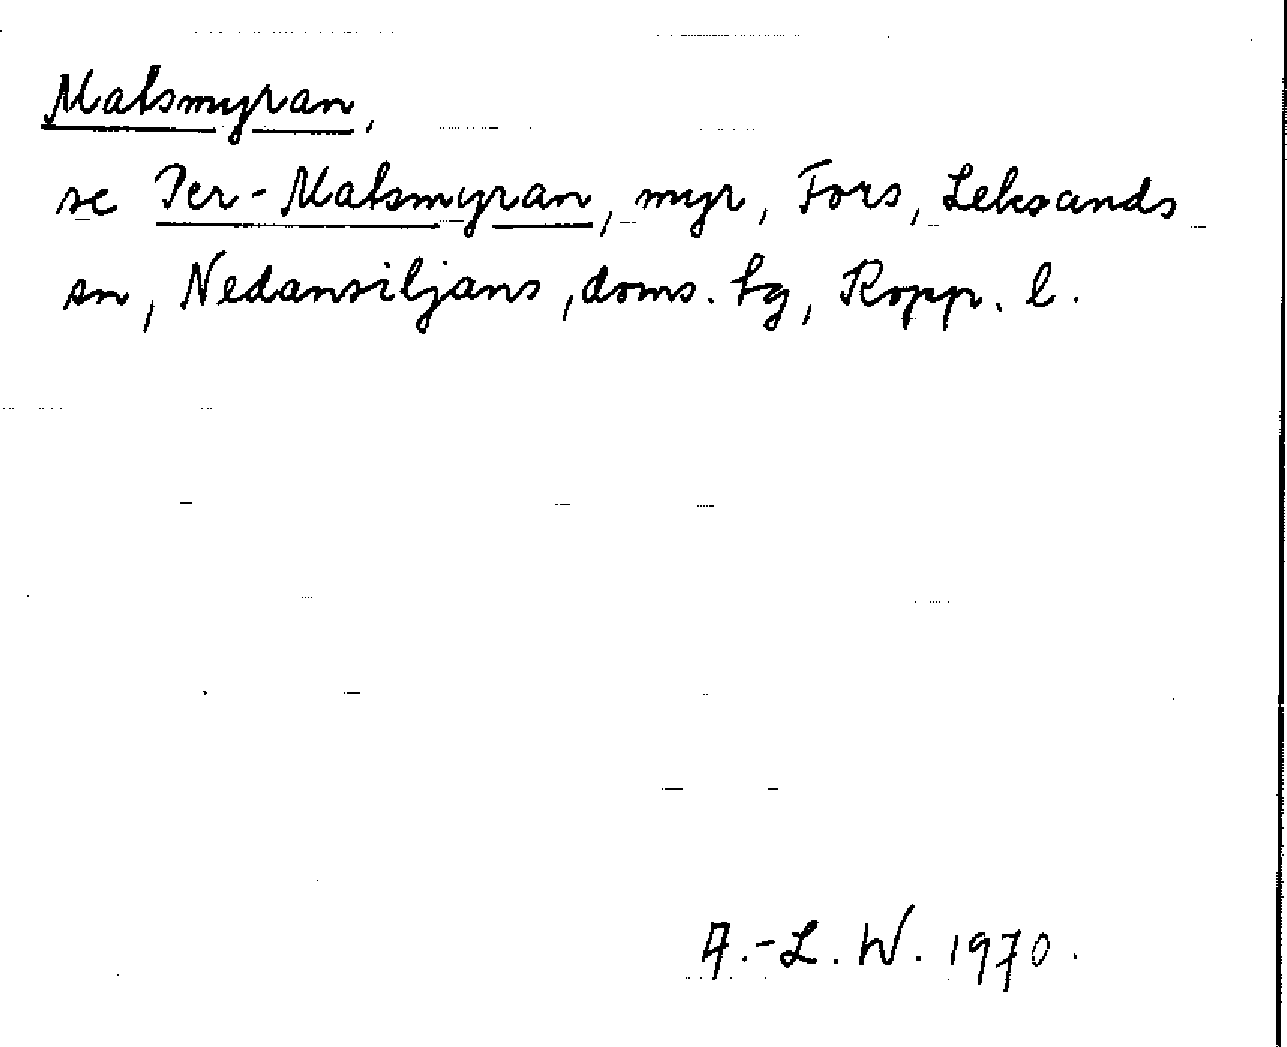 Matsmyran,
se Per-Matsmyran, myr, Fors, Leksands
sn, Nedansiljans, doms. tg, Kopp. l.
A.-L. W. 1970.